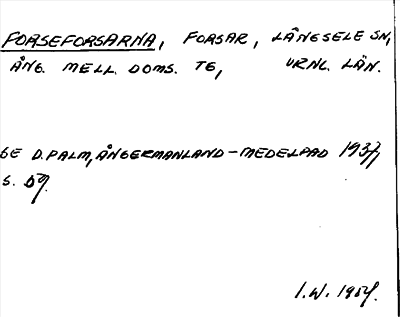 FORSEFORSARNA, FORSAR, LÅNGSELE SN,
ÅNG. MELL. DOMS. TG, VRNL. LÄN.
SE D. PALM, ÅNGERMANLAND-MEDELPAD 1937,
S. 59.
I.W. 1954.